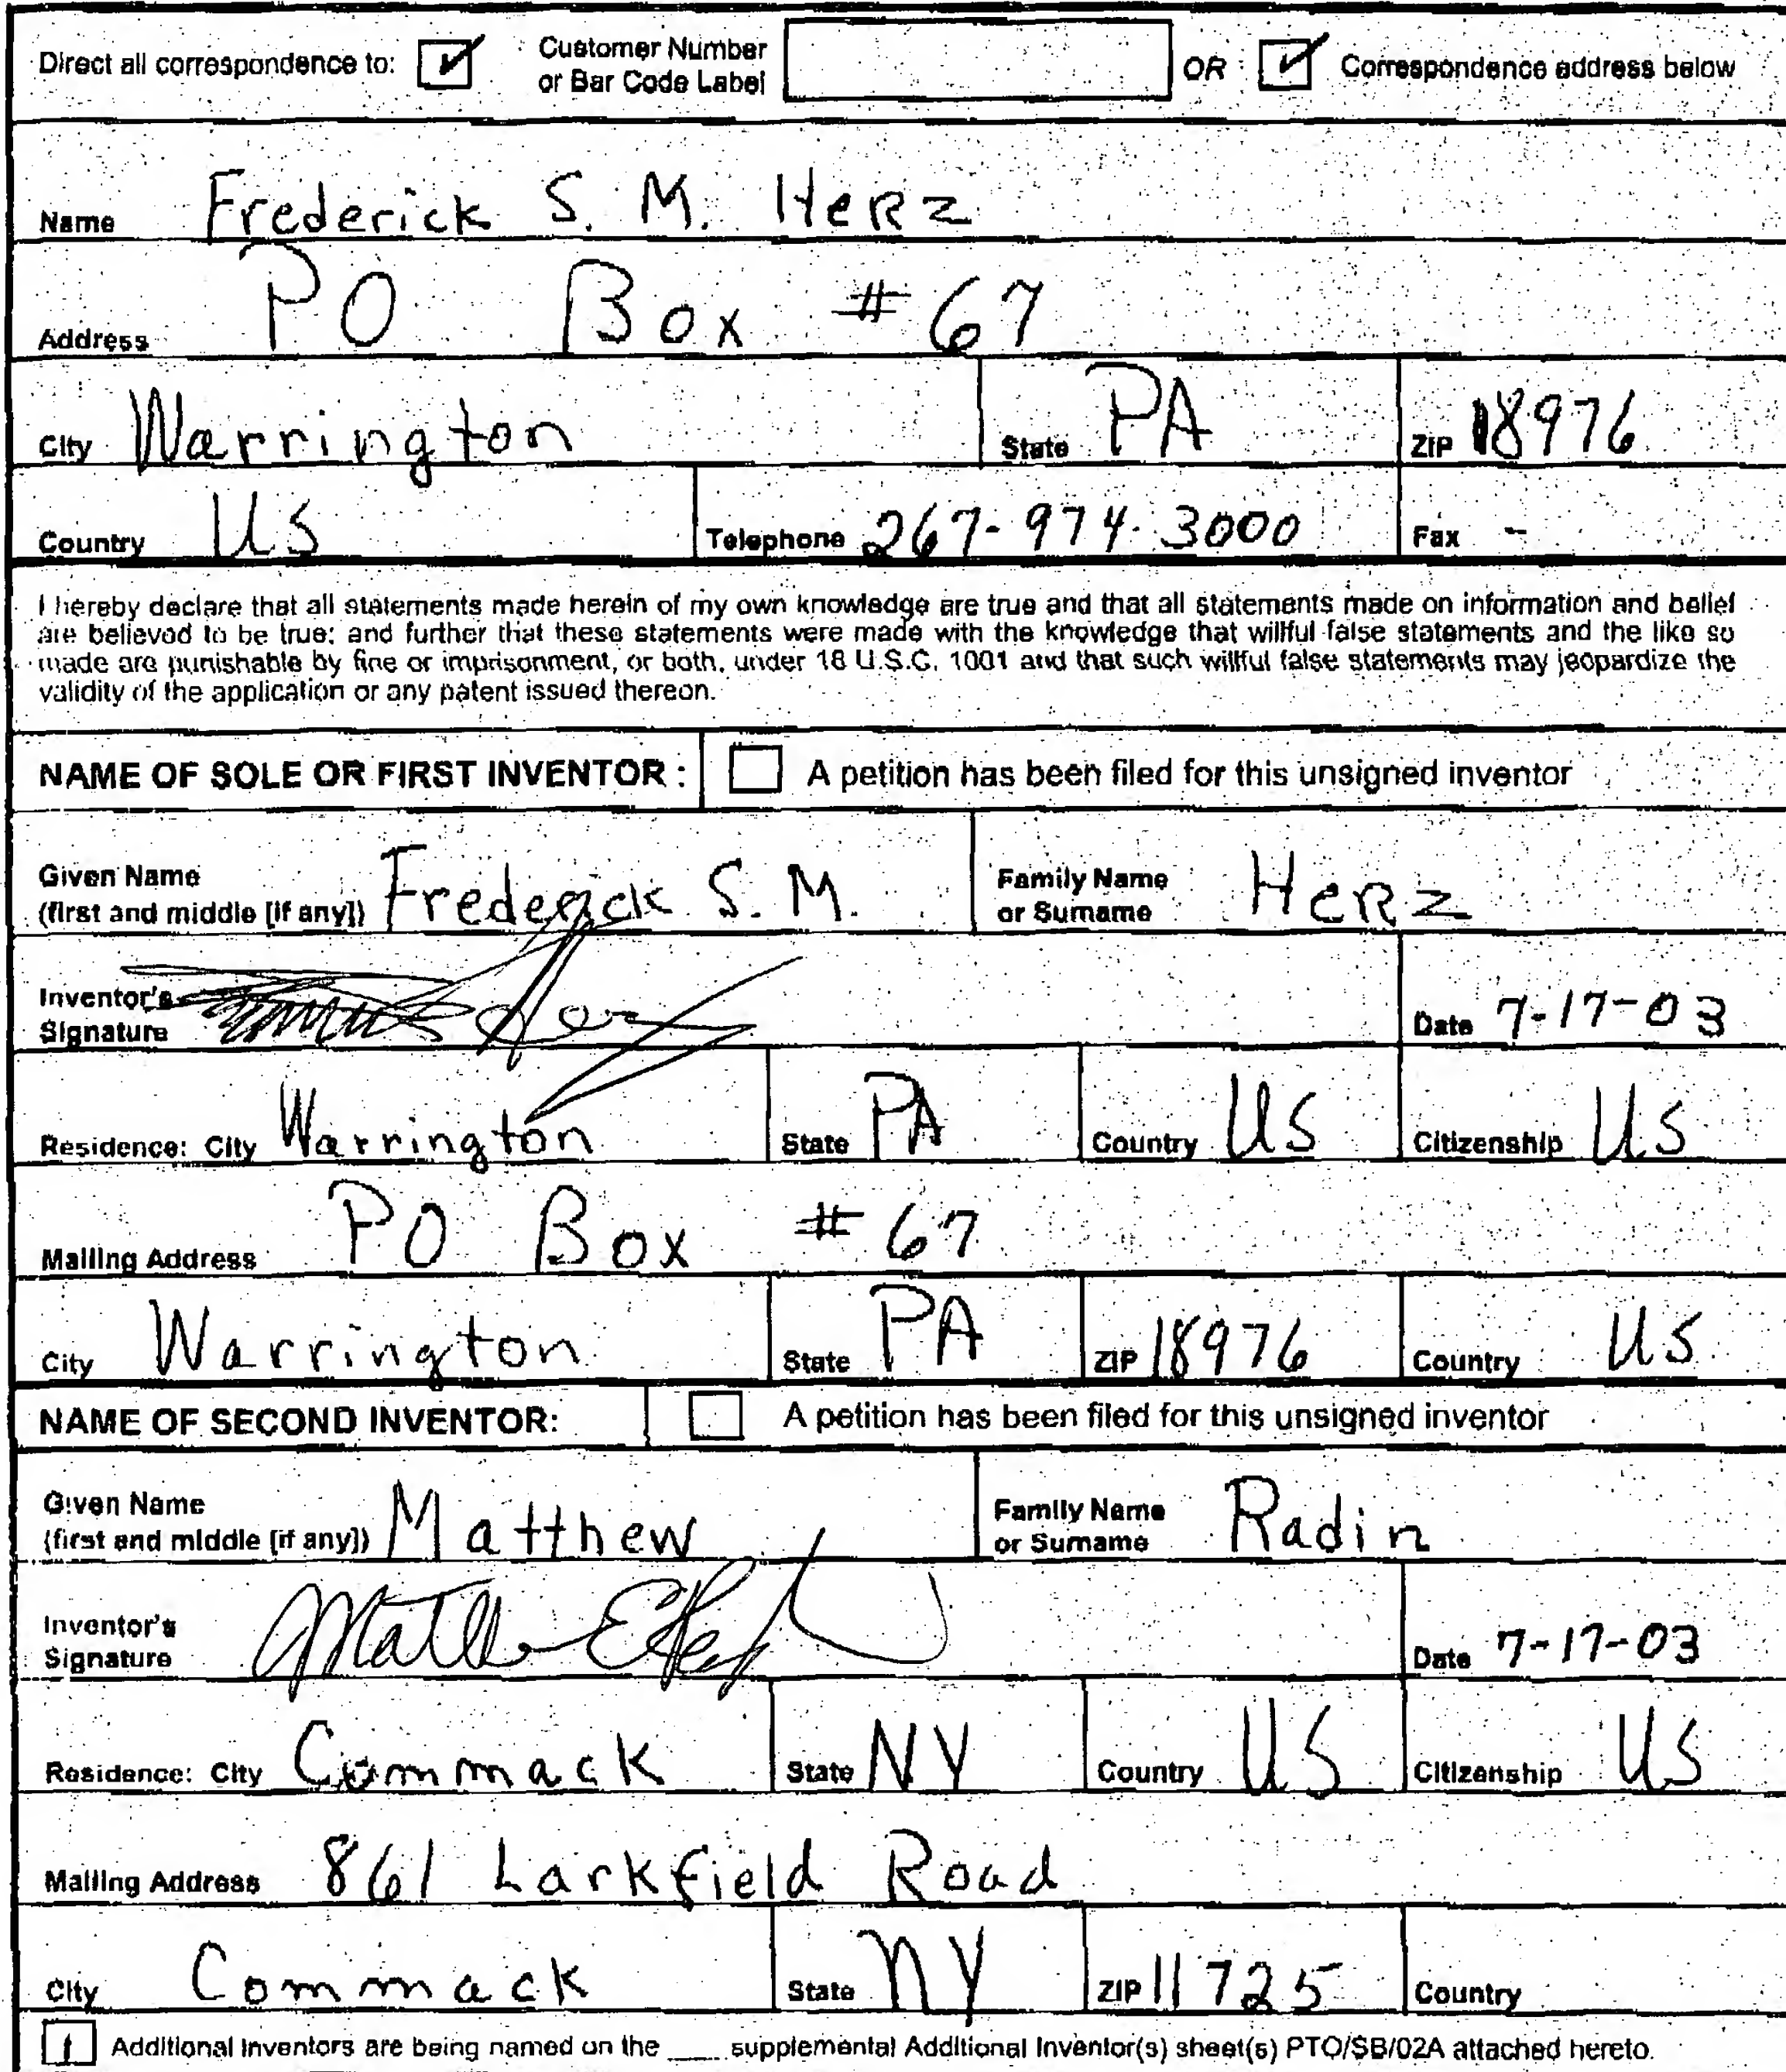 Direct all correspondence to: Customer Number or Bar Code Label OR Correspondence address below
Name Frederick S. M. Herz
Address PO Box # 67
City Warrington State PA ZIP 18976
Country US Telephone 267-974-3000 Fax -
I hereby declare that all statements made herein of my own knowledge are true and that all statements made on information and belief
are believed to be true; and further that these statements were made with the knowledge that willful false statements and the like so
made are punishable by fine or imprisonment, or both, under 18 U.S.C. 1001 and that such willful false statements may jeopardize the
validity of the application or any patent issued thereon.
NAME OF SOLE OR FIRST INVENTOR : A petition has been filed for this unsigned inventor
Given Name (first and middle [if any]) Frederick S. M. Family Name or Surname Herz
Inventor's Signature Date 7-17-03
Residence: City Warrington State PA Country US Citizenship US
Mailing Address PO Box # 67
City Warrington State PA ZIP 18976 Country US
NAME OF SECOND INVENTOR: A petition has been filed for this unsigned inventor
Given Name (first and middle [if any]) Matthew Family Name or Surname Radin
Inventor's Signature Date 7-17-03
Residence: City Commack State NY Country US Citizenship US
Mailing Address 861 Larkfield Road
City Commack State NY ZIP 11725 Country
Additional Inventors are being named on the ___ supplemental Additional Inventor(s) sheet(s) PTO/SB/02A attached hereto.